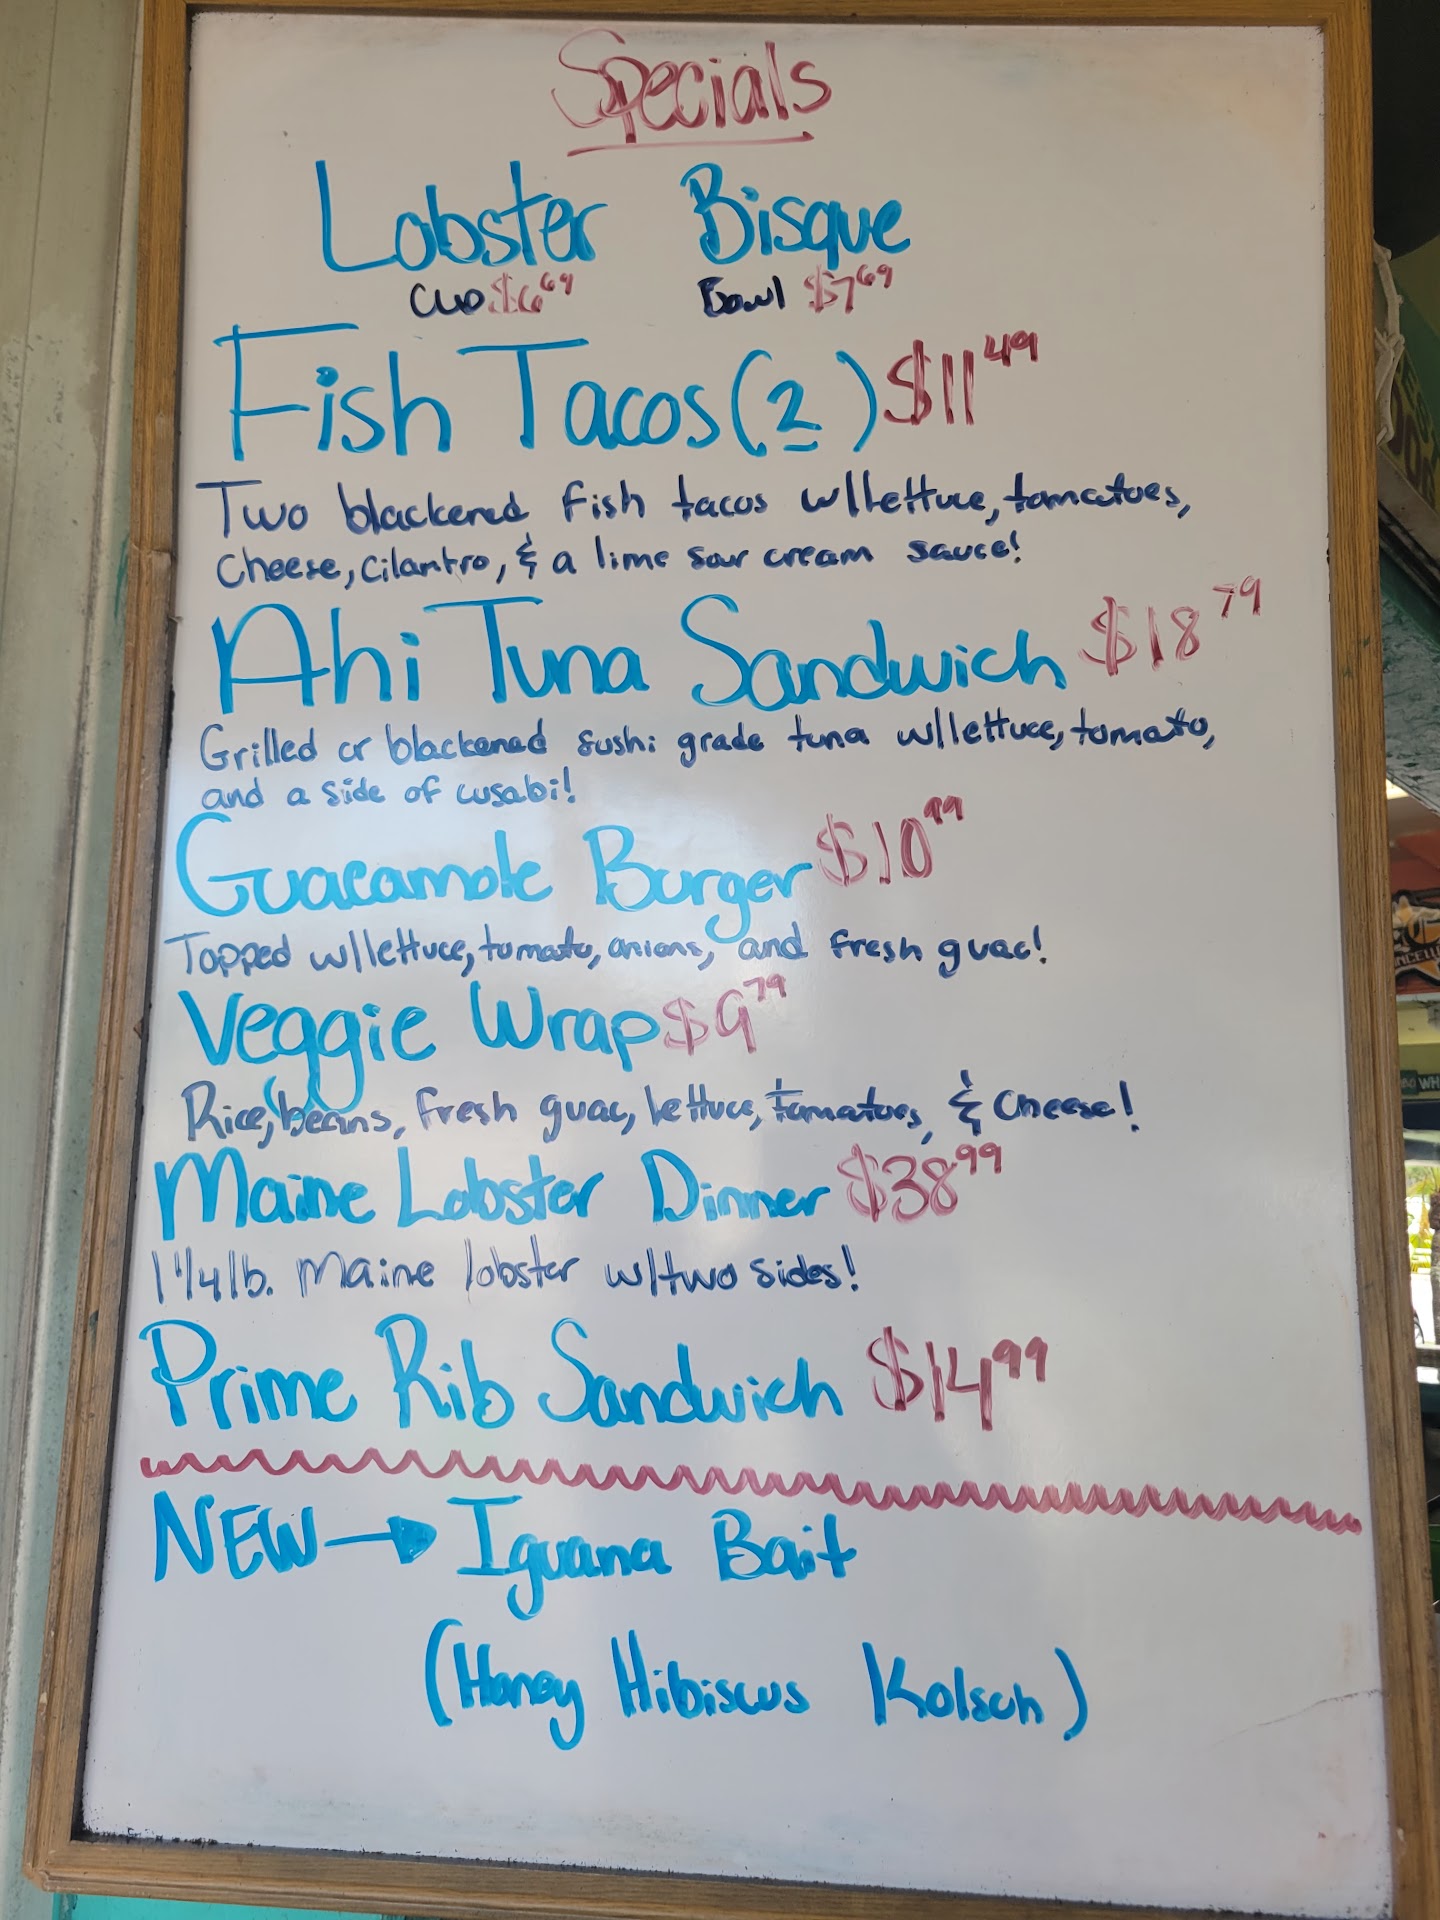 Specials
Lobster Bisque
Cup $6.69 Bowl $7.69
Fish Tacos (2) $11.49
Two blackened fish tacos w/lettuce, tomatoes,
cheese, cilantro, & a lime sour cream sauce!
Ahi Tuna Sandwich $18.79
Grilled or blackened sushi grade tuna w/lettuce, tomato,
and a side of cusabi!
Guacamole Burger $10.99
Topped w/lettuce, tomato, onions, and fresh guac!
Veggie Wrap $9.79
Rice, beans, fresh guac, lettuce, tomatoes, & cheese!
Maine Lobster Dinner $38.99
1 1/4 lb. Maine lobster w/two sides!
Prime Rib Sandwich $14.99
NEW → Iguana Bait
(Honey Hibiscus Kolsch)